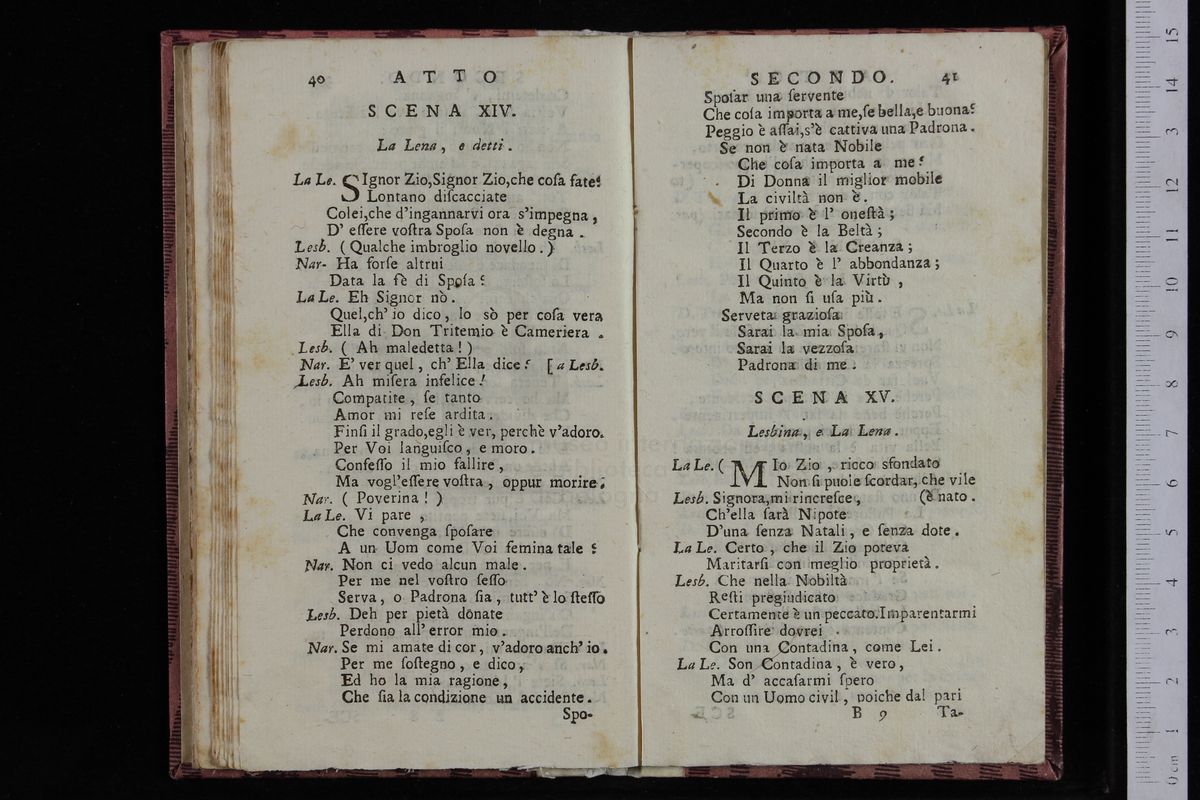 40 ATTO
SCENA XIV.
La Lena, e detti.
La Le. SIgnor Zio,Signor Zio,che coſa fate?
Lontano diſcacciate
Colei,che d'ingannarvi ora s'impegna,
D' eſſere voſtra Spoſa non è degna.
Lesb. (Qualche imbroglio novello.)
Nar- Ha forſe altrui
Data la fè di Spoſa?
La Le. Eh Signor nò.
Quel,ch' io dico, lo sò per coſa vera
Ella di Don Tritemio è Cameriera.
Lesb. ( Ah maledetta! )
Nar. E' ver quel, ch' Ella dice? [a Lesb.
Lesb. Ah miſera infelice!
Compatite, ſe tanto
Amor mi reſe ardita.
Finſi il grado,egli è ver, perchè v'adoro.
Per Voi languiſco, e moro.
Confeſſo il mio fallire,
Ma vogl'eſſere voſtra, oppur morire.
Nar. ( Poverina! )
La Le. Vi pare,
Che convenga ſpoſare
A un Uom come Voi femina tale?
Nar. Non ci vedo alcun male.
Per me nel voſtro ſeſſo
Serva, o Padrona ſia, tutt' è lo ſteſſo
Lesb. Deh per pietà donate
Perdono all' error mio.
Nar. Se mi amate di cor, v'adoro anch' io.
Per me ſoſtegno, e dico,
Ed ho la mia ragione,
Che ſia la condizione un accidente.
Spo-
SECONDO. 41
Spoſar una ſervente
Che coſa importa a me,ſe bella,e buona?
Peggio è aſſai,s'è cattiva una Padrona.
Se non è nata Nobile
Che coſa importa a me?
Di Donna il miglior mobile
La civiltà non è.
Il primo è l' oneſtà;
Secondo è la Beltà;
Il Terzo è la Creanza;
Il Quarto è l' abbondanza;
Il Quinto è la Virtù,
Ma non ſi uſa più.
Serveta grazioſa
Sarai la mia Spoſa,
Sarai la vezzoſa
Padrona di me.
SCENA XV.
Lesbina, e La Lena.
La Le. ( MIo Zio, ricco sfondato
Non ſi puole ſcordar, che vile
Lesb. Signora,mi rincreſce, (è nato.
Ch'ella ſarà Nipote
D'una ſenza Natali, e ſenza dote.
La Le. Certo, che il Zio poteva
Maritarſi con meglio proprietà.
Lesb. Che nella Nobiltà
Reſti pregiudicato
Certamente è un peccato.Imparentarmi
Arroſſire dovrei.
Con una Contadina, come Lei.
La Le. Son Contadina, è vero,
Ma d' accaſarmi ſpero
Con un Uomo civil, poiche dal pari
B 9 Ta-